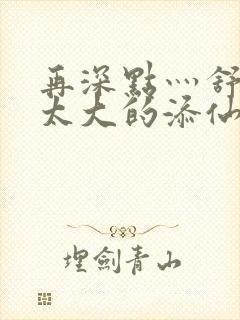 再深點灬舒
太大的添仙
埋劍青山